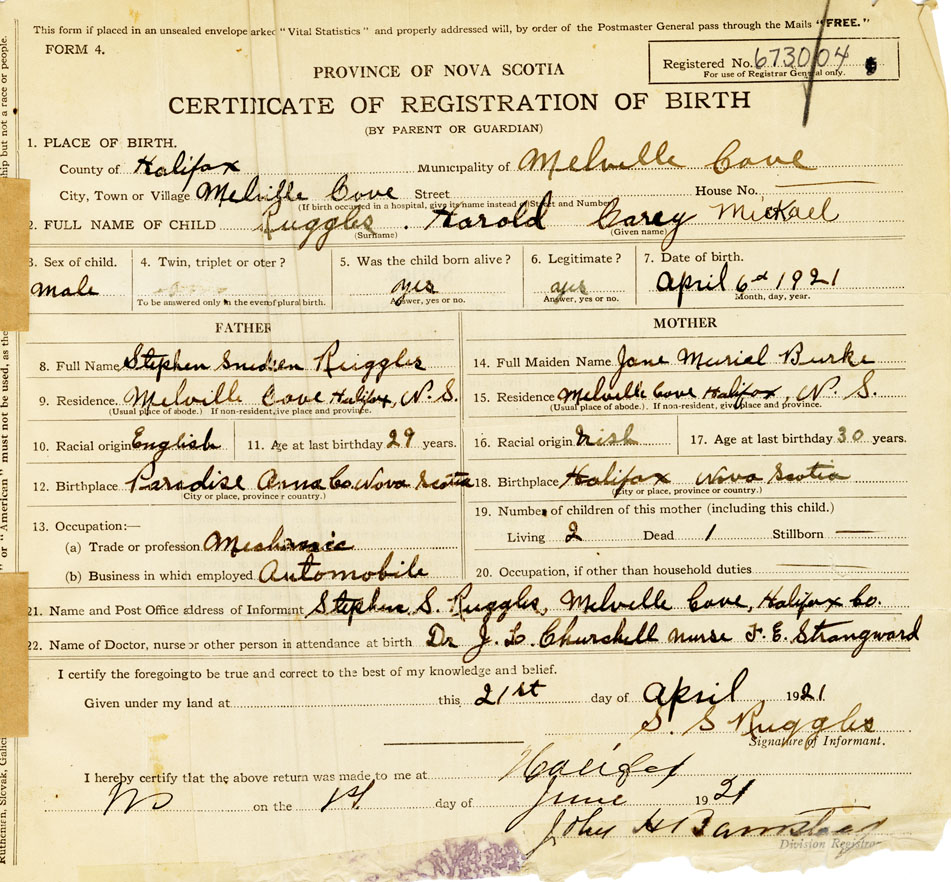 This form if placed in an unsealed envelope arked "Vital Statistics" and properly addressed will, by order of the Postmaster General pass through the Mails "FREE."
FORM 4.
Registered No. 673004
For use of Registrar General only.
PROVINCE OF NOVA SCOTIA
CERTIFICATE OF REGISTRATION OF BIRTH
(BY PARENT OR GUARDIAN)
1. PLACE OF BIRTH.
County of Halifax Municipality of Melville Cove
City, Town or Village Melville Cove Street House No.
(If birth occurred in a hospital, give its name instead of Street and Number)
2. FULL NAME OF CHILD Ruggles. Harold Carey Mickael
(Surname) (Given name)
3. Sex of child. 4. Twin, triplet or oter? 5. Was the child born alive? 6. Legitimate? 7. Date of birth.
Male yes yes April 6 1921
To be answered only in the event of plural birth. Answer, yes or no. Answer, yes or no. Month, day, year.
FATHER MOTHER
8. Full Name Stephen Ruggles 14. Full Maiden Name Jane Murial Burke
9. Residence. Melville Cove Halifax, N. S. 15. Residence Melville Cove Halifax, N. S.
(Usual place of abode.) If non-resident, give place and province. (Usual place of abode.) If non-resident, give place and province.
10. Racial origin English 11. Age at last birthday 29 years. 16. Racial origin Irish 17. Age at last birthday 30 years.
12. Birthplace Paradise Anna Co. Nova Scotia 18. Birthplace Halifax Nova Scotia
(City or place, province or country.) (City or place, province or country.)
13. Occupation:—
19. Number of children of this mother (including this child.)
(a) Trade or profession Mechanic
Living 2 Dead 1 Stillborn —
(b) Business in which employed Automobile
20. Occupation, if other than household duties —
21. Name and Post Office address of Informant Stephen S. Ruggles, Melville Cove, Halifax Co.
22. Name of Doctor, nurse or other person in attendance at birth Dr J. L. Churchill nurse F. E. Strangward
I certify the foregoing to be true and correct to the best of my knowledge and belief.
Given under my hand at this 21st day of April 1921
S. S Ruggles
Signature of Informant.
I hereby certify that the above return was made to me at Halifax
NS on the 1st day of June 1921
John H Barnstead
Division Registrar